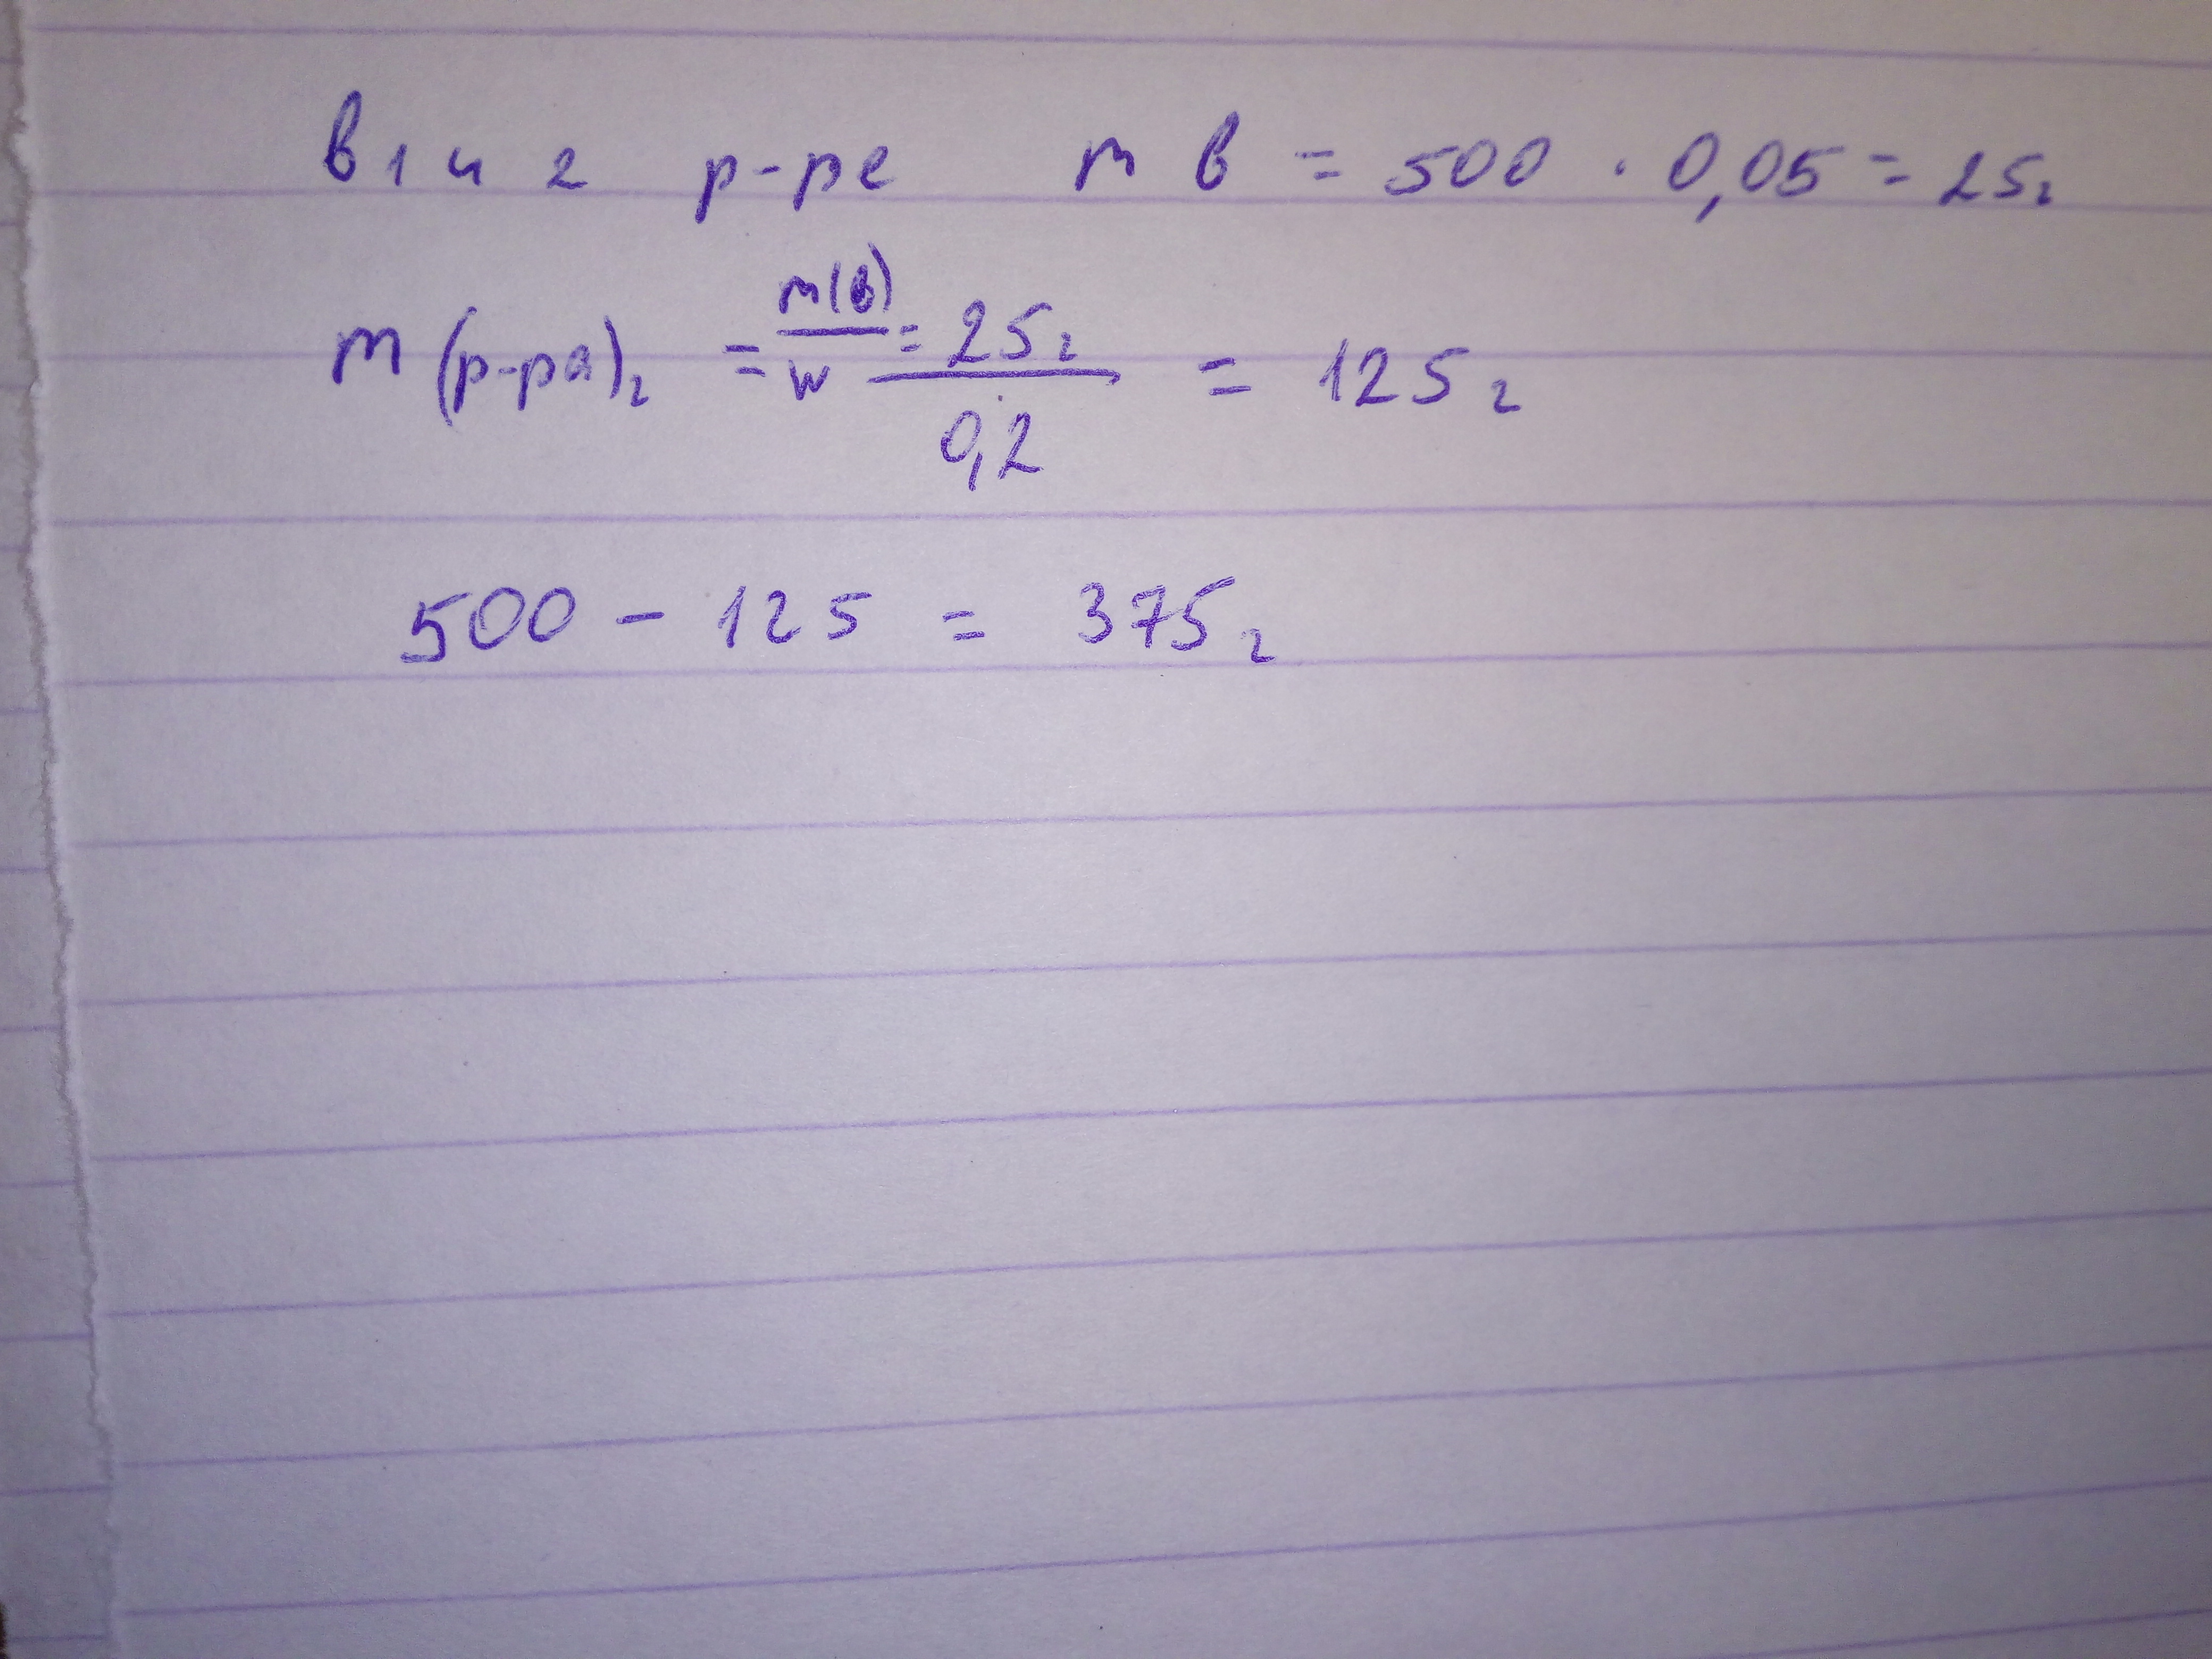 в 1 и 2 р-ре m в = 500 · 0,05 = 25г
m (р-ра)₂ = m(в)/w = 25г/0,2 = 125г
500 - 125 = 375г